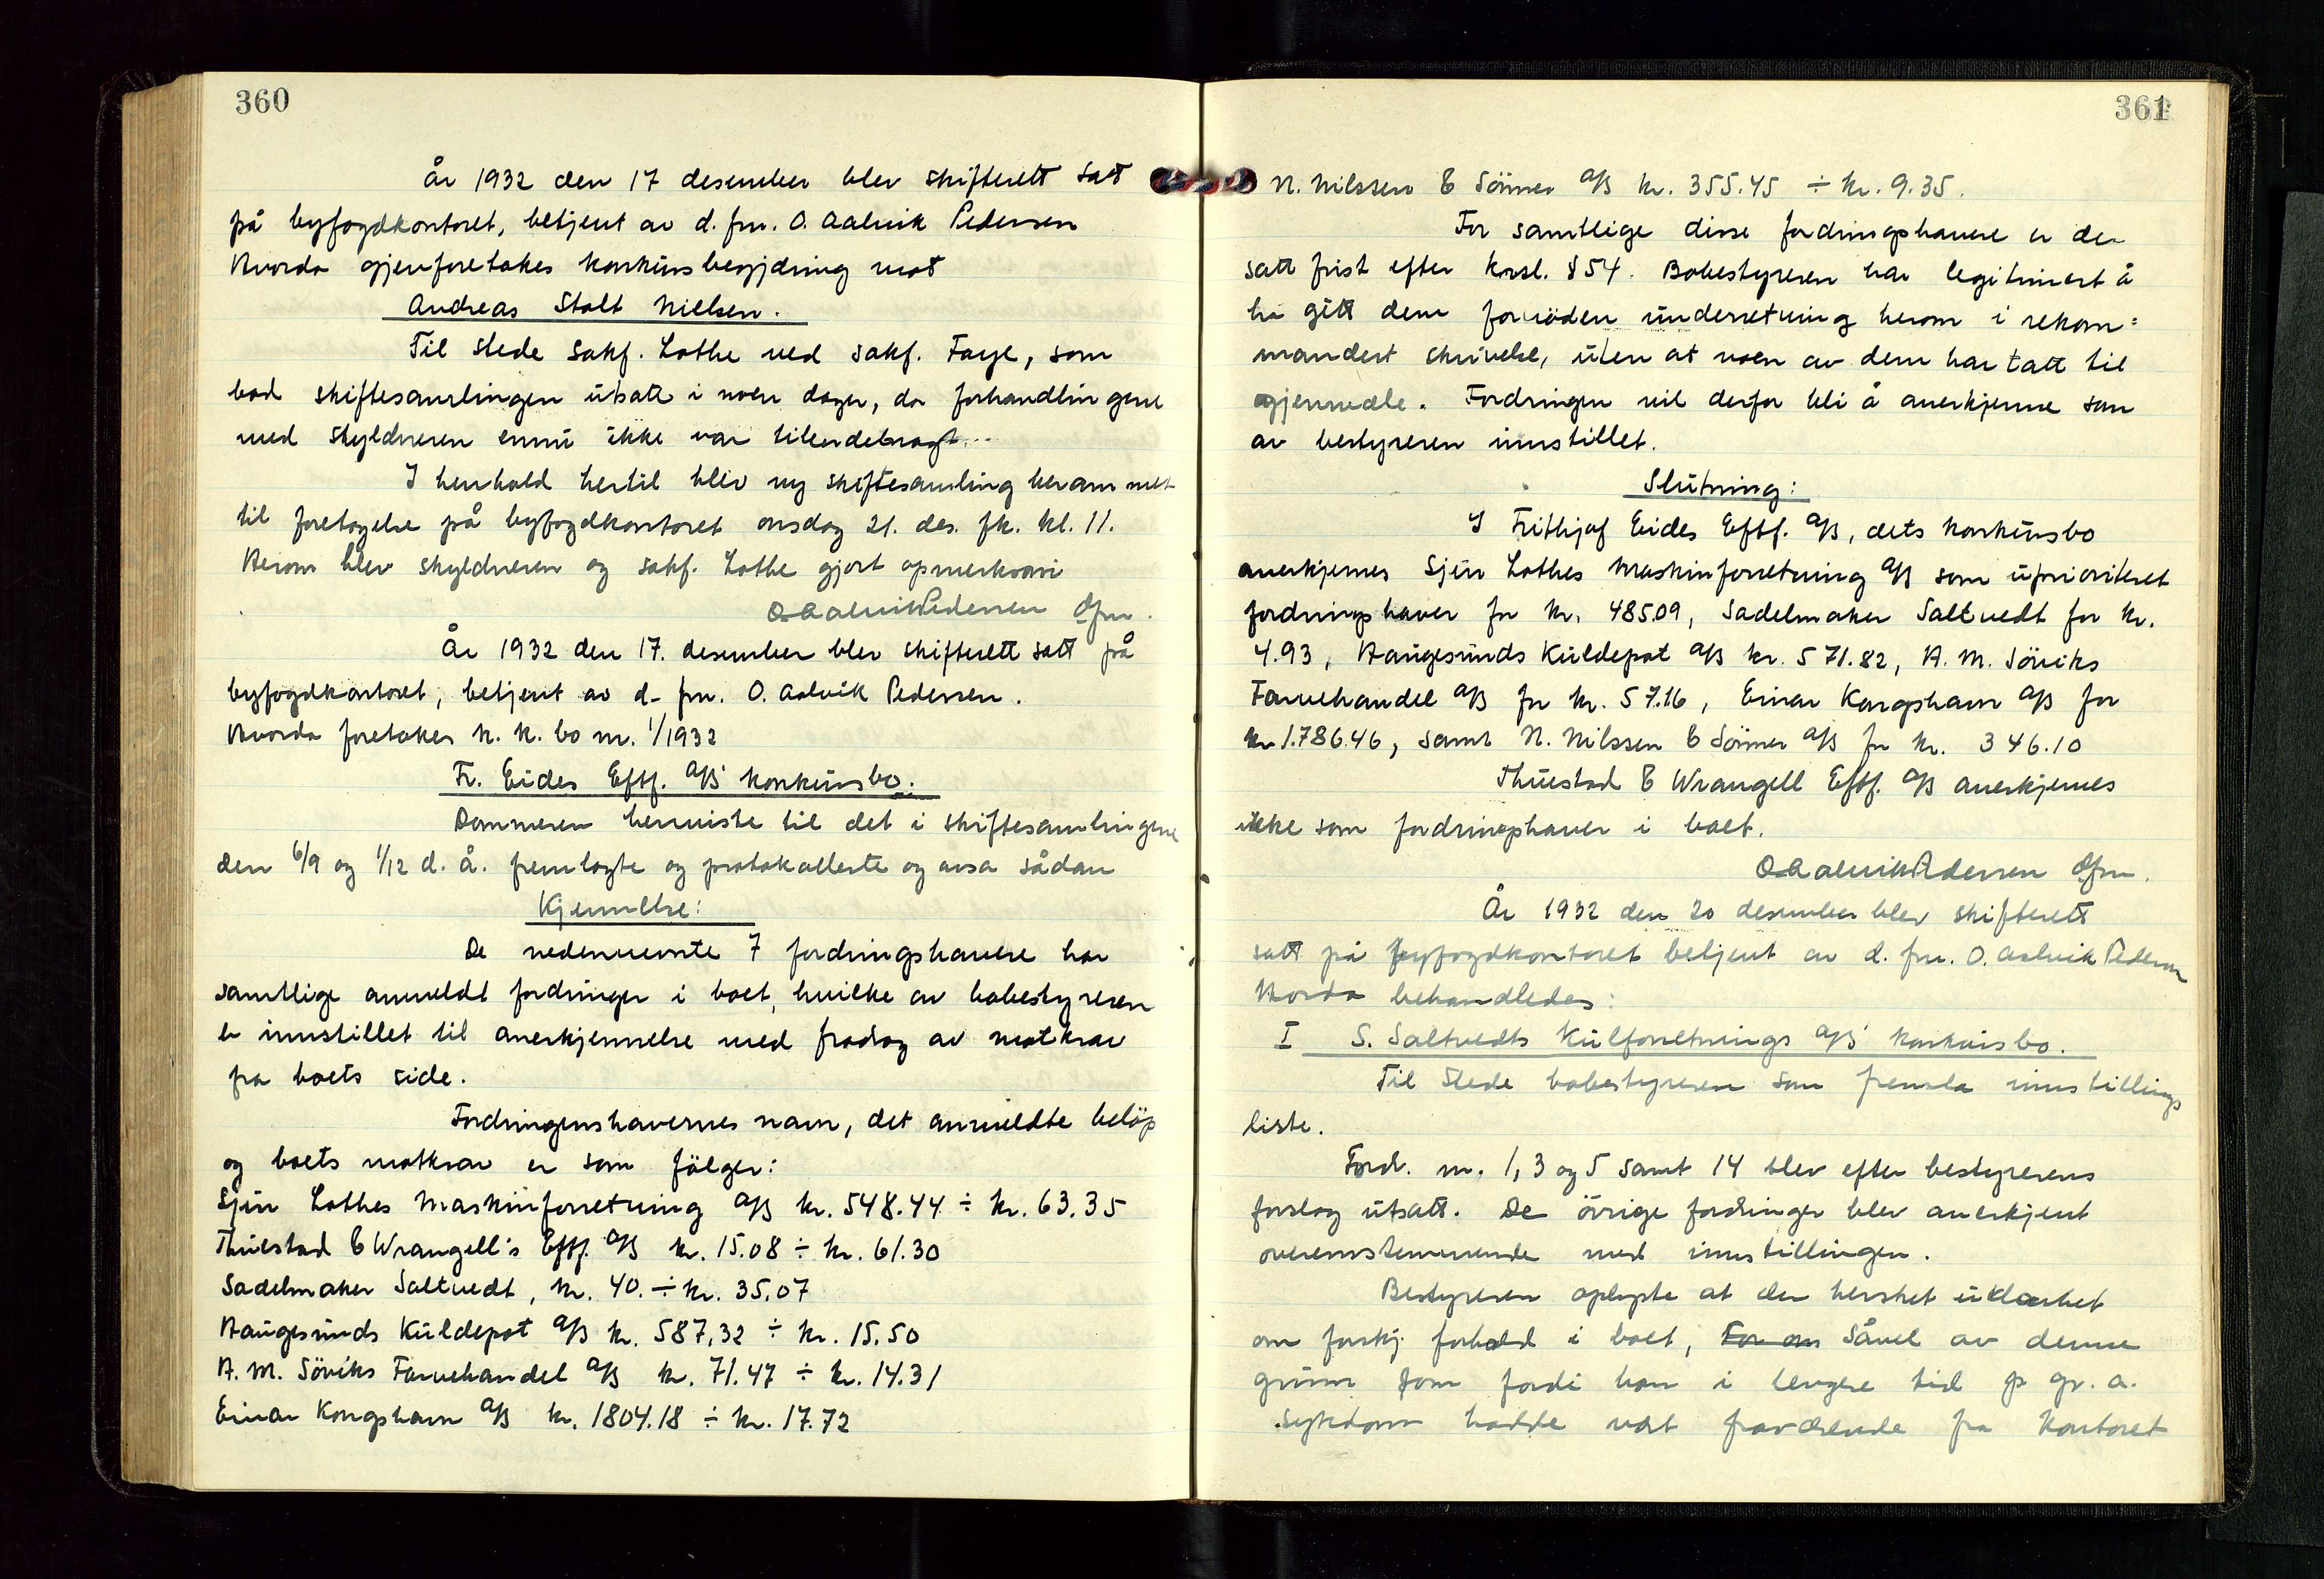 360
År 1932 den 17 desember blev skifterett satt
på byfogdkontoret, betjent av d. fm. O. Aalvik Pedersen
Hvorda gjenforetokes konkursbegjæring mot
Andreas Stolt Nielsen.
Til stede sakf. Lothe ved sakf. Faye, som
bad skiftesamlingen utsatt i noen dager, da forhandlingene
med skyldneren ennu ikke var tilendebragt.
I henhold hertil blev ny skiftesamling berammet
til foretagelse på byfogdkontoret onsdag 21. des. fk. kl. 11.
Herom blev skyldneren og sakf. Lothe gjort opmerksom
O Aalvik Pedersen dfm.
År 1932 den 17. desember blev skifterett satt på
byfogdkontoret, betjent av d. fm. O. Aalvik Pedersen.
Hvorda foretokes k. k. bo nr. 1/1932
Fr. Eides Eftf. A/S' konkursbo.
Dommeren henviste til det i skiftesamlingene
den 6/9 og 1/12 d. å. fremlagte og protokollerte og avsa sådan
Kjennelse:
De nedennevnte 7 fordringshavere har
samtlige anmeldt fordringer i boet, hvilke av bobestyreren
er innstillet til anerkjennelse med fradag av motkrav
fra boets side.
Fordringenshavernes navn, det anmeldte beløp
og boets motkrav er som følger:
Sjur Lothes Maskinforretning A/S kr. 548.44 ÷ kr. 63.35
Thuestad & Wrangell's Eftf. A/S kr. 15.08 ÷ kr. 61.30
Sadelmaker Saltvedt, kr. 40. ÷ kr. 35.07
Haugesunds Kuldepot A/S kr. 587,32 ÷ kr. 15.50
H. M. Søviks Farvehandel A/S kr. 71.47 ÷ kr. 14.31
Einar Kongshavn A/S kr. 1804.18 ÷ kr. 17.72
361
N. Nilssen & Sønner A/S kr. 355.45 ÷ kr. 9.35.
For samtlige disse fordringshavere er der
satt frist efter krsl. § 54. Bobestyreren har legitimert å
ha gitt dem fornøden underretning herom i rekom=
mandert skrivelse, uten at noen av dem har tatt til
gjenmæle. Fordringen vil derfor bli å anerkjenne som
av bestyreren innstillet.
Slutning:
I Frithjof Eides Eftf. A/S, dets konkursbo
anerkjennes Sjur Lothes Maskinforretning A/S som uprioritert
fordringshaver for kr. 485.09, Sadelmaker Saltvedt for kr.
4.93, Haugesunds Kuldepot A/S kr. 571.82, H. M. Søviks
Farvehandel A/S for kr. 57.16, Einar Kongshavn A/S for
kr. 1.786.46, samt N. Nilssen & Sønner A/S for kr. 346.10
Thuestad & Wrangell Eftf. A/S anerkjennes
ikke som fordringshaver i boet.
O Aalvik Pedersen dfm.
År 1932 den 20 desember blev skifterett
satt på byfogdkontoret betjent av d. fm. O. Aalvik Pedersen
Hvorda behandledes:
I S. Saltvedts Kulforretnings A/S' konkursbo.
Til stede bobestyreren som fremla innstillings
liste.
Fordr. nr. 1, 3 og 5 samt 14 blev efter bestyrerens
forslag utsatt. De øvrige fordringer blev anerkjent
overensstemmende med innstillingen.
Bestyreren oplyste at der hersket uklarhet
om forskj. forhold i boet, For om Såvel av denne
grunn som fordi han i lengere tid p gr. a.
sykdom hadde vært fraværende fra kontoret